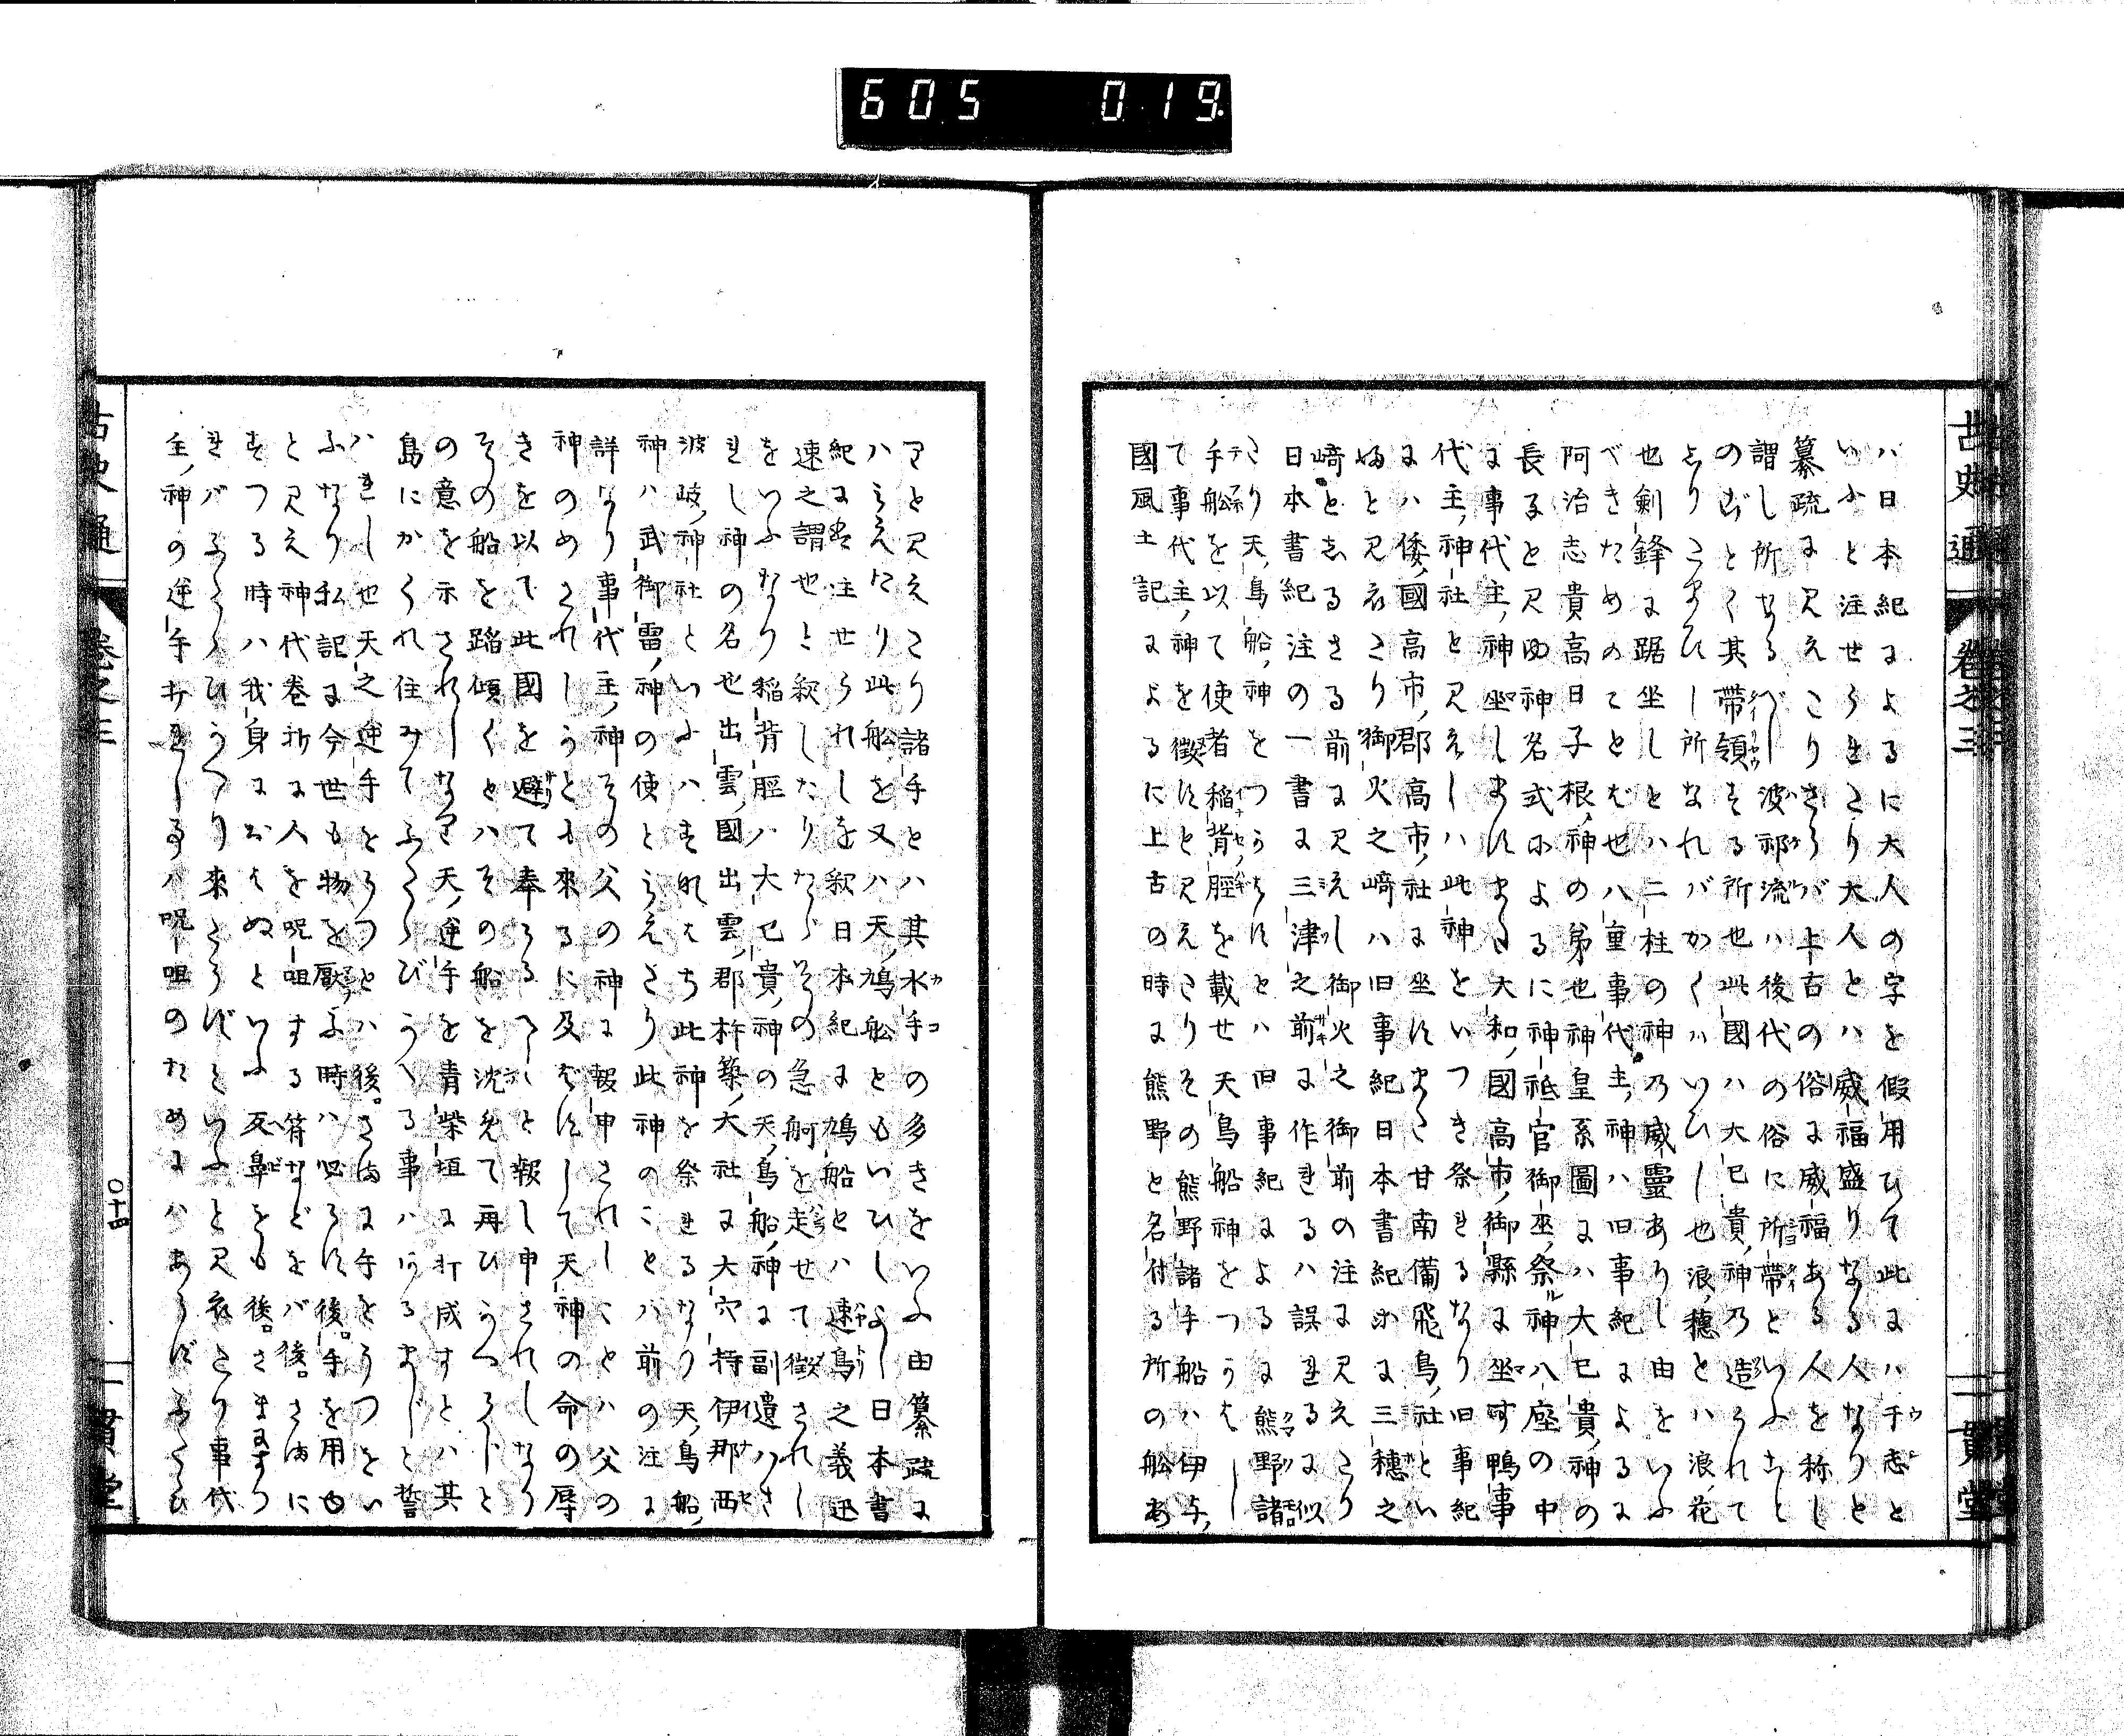 605 019
古史通 卷之三 一貫堂
ハ日本紀によるに大人の字を假用ひて此にハ于志と
いふと注せられたり大人とハ威福盛りなる人なりと
纂疏に見えたりさらバ上古の俗に威福ある人を称し
謂し所なるべし波祁流ハ後代の俗に所帶といふこと
のごとく其帶領する所也此國ハ大己貴神乃造られて
とりこまひし所なれバかくハいひし也浪穗とハ浪花
也剣鋒に踞坐しとハ二柱の神乃威靈ありし由をいふ
べきためのことば也八重事代主神ハ旧事紀によるに
阿治志貴高日子根神の弟也神皇系圖にハ大己貴神の
長子と見ゆ神名式によるに神祇官御巫祭神八座の中
に事代主神坐しますまた大和國高市御縣に坐す鴨事
代主神社と見えしハ此神をいつき祭れるなり旧事紀
にハ倭國高市郡高市社に坐すまた甘南備飛鳥社とい
ふと見えたり御火之﨑ハ旧事紀日本書紀に三穗之
﨑としるさる前に見えし御火之御前の注に見えたり
日本書紀注の一書に三津之前に作れるハ誤れるに似
たり天鳥船神をつうはすとハ旧事紀によるに熊野諸
手船を以て使者稲背脛を載せ天鳥船神をつうはし
て事代主神を徴すと見えたりその熊野諸手船ハ伊与
國風土記によるに上古の時に熊野と名付る所の船あ
りと見えたり諸手とハ其水手の多きをいふ由纂疏に
ハみえたり此船を又ハ天鳩船ともいひしよし日本書
紀に注せられしを釈日本紀に鳩船とハ速鳥之義迅
速之謂也と釈したりたゞその急舸を走せて徴されし
をいふなり稲背脛ハ大己貴神の天鳥船神に副遣ハさ
れし神の名也出雲國出雲郡杵築大社に大穴持伊那西
波岐神社といふハすなはち此神を祭れるなり天鳥船
神ハ武御雷神の使とみえたり此神のことハ前の注に
詳なり事代主神その父の神に報申されしことハ父の
神のめされしうとも來るに及ばずして天神の命の辱
きを以て此國を避て奉らるべしと報し申されしなり
その船を蹈傾くとハその船を沈めて再びうつらじと
の意を示されしなり天逆手を青柴垣に打成すとハ其
島にかくれ住みてふたゝびうへる事ハあるまじと誓
ハれし也天之逆手とうつとハ後さまに手をうつとい
ふなり私記に今世も物を厭ふ時ハ必らず後手を用也
と見え神代卷折に人を呪咀する背などをバ後さまに
すつる時ハ我身におはぬといふ瓦鼻をも後さまにすつ
ればふたゝひうつり來とらずといふと見えたり事代
主神の逆手打れし事ハ呪咀のためにハあらずふたゝひ
古史通 卷之三 〇十四 一貫堂